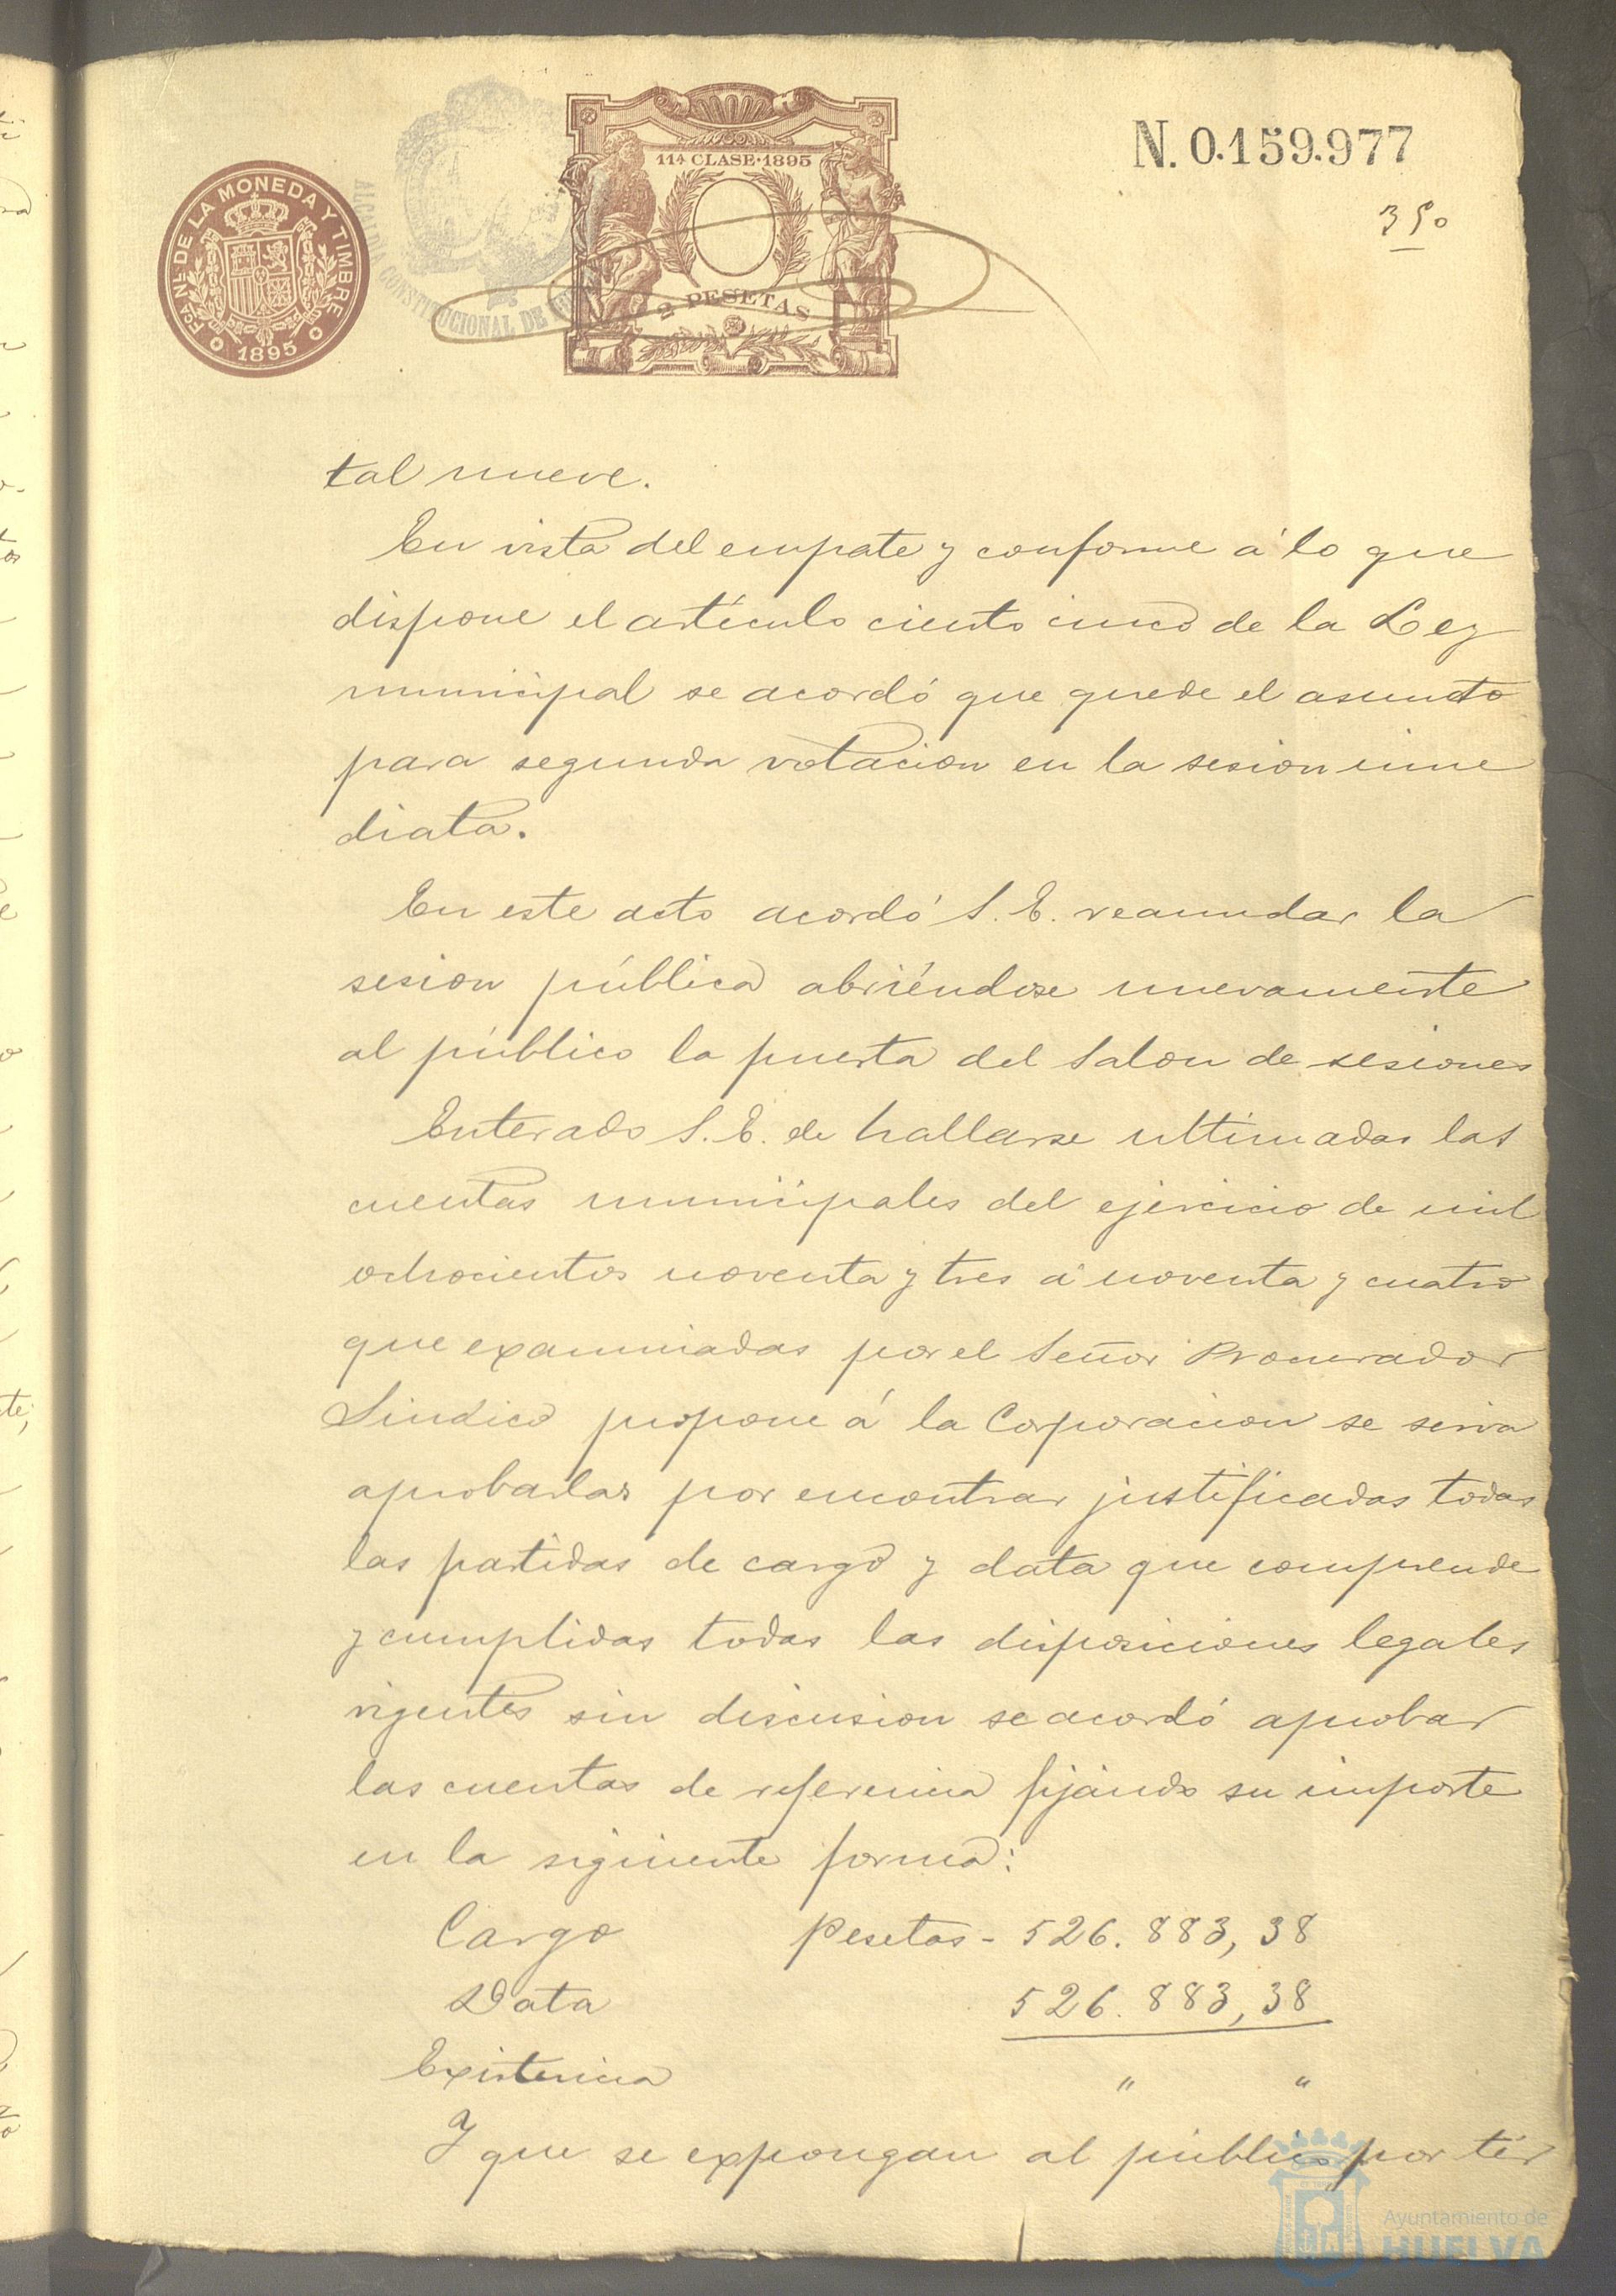 N. 0.159.977
350
11ª CLASE·1895
2 PESETAS
FCA NL DE LA MONEDA Y TIMBRE
1895
ALCALDIA CONSTITUCIONAL DE
tal nueve.
En vista del empate y conforme á lo que
dispone el artículo ciento cinco de la Ley
municipal se acordó que quede el asunto
para segunda votacion en la sesion inme
diata.
En este acto acordó S. E. reanudar la
sesion pública abriéndose nuevamente
al público la puerta del Salon de sesiones
Enterado S. E. de hallarse ultimadas las
cuentas municipales del ejercicio de mil
ochocientos noventa y tres á noventa y cuatro
que examinadas por el Señor Procurador
Sindico propone á la Corporacion se sirva
aprobarlas por encontrar justificadas todas
las partidas de cargo y data que comprende
y cumplidas todas las disposiciones legales
vigentes sin discusion se acordó aprobar
las cuentas de referencia fijando su importe
en la siguiente forma:
Cargo Pesetas - 526.883,38
Data 526.883,38
Existencia " "
Y que se expongan al público por tér
Ayuntamiento de
HUELVA